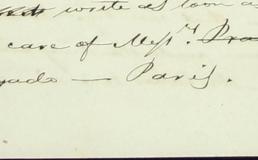 write as soon a
care of Messrs. Pra
gado — Paris.